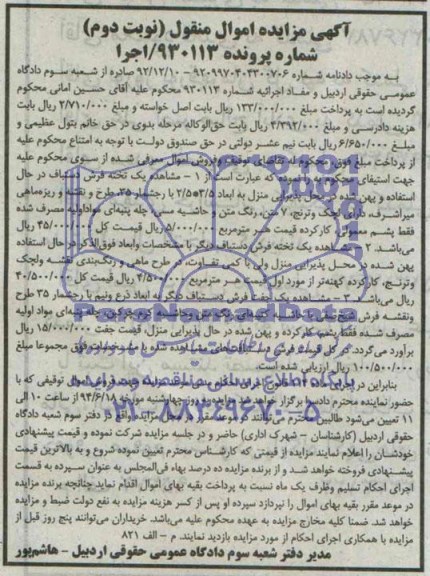 آگهی مزایده اموال منقول (نوبت دوم)
شماره پرونده ۹۳۰۱۱۳/اجرا
به موجب دادنامه شماره ۹۲۰۹۹۷۰۴۰۳۳۰۰۷۰۶ – ۹۲/۱۲/۱۰ صادره از شعبه سوم دادگاه
عمومی حقوقی اردبیل و مفاد اجرائیه شماره ۹۳۰۱۱۳ محکوم علیه آقای حسین امانی محکوم
گردیده است به پرداخت مبلغ ۱۳۳/۰۰۰/۰۰۰ ریال بابت اصل خواسته و مبلغ ۲/۷۱۰/۰۰۰ ریال بابت
هزینه دادرسی و مبلغ ۳/۳۹۲/۰۰۰ ریال بابت حق‌الوکاله مرحله بدوی در حق خانم بتول عظیمی و
مبلغ ۶/۶۵۰/۰۰۰ ریال بابت نیم عشر دولتی در حق صندوق دولت با توجه به امتناع محکوم علیه
از پرداخت مبلغ فوق، محکوم‌له تقاضای توقیف و فروش اموال معرفی شده از سوی محکوم علیه
جهت استیفای محکوم به را نموده که عبارت است از ۱ – مشاهده یک تخته فرش دستباف در حال
استفاده و پهن شده در محل پذیرایی منزل به ابعاد ۳/۵×۲/۵ با رجشمار ۳۵، طرح و نقشه و ریزه‌ماهی
میراشرف، دارای لچک وترنج، ۷ متن، رنگ متن و حاشیه سرمه، چله پنبه‌ای مواداولیه مصرف شده
فقط پشم معمولی، کارکرده قیمت هر مترمربع ۵/۰۰۰/۰۰۰ ریال قیمت کل ۴۵/۰۰۰/۰۰۰ ریال
می‌باشد. ۲ – مشاهده یک تخته فرش دستباف دیگر با مشخصات وابعاد فوق‌الذکر در حال استفاده
پهن شده در محل پذیرایی منزل ولی با کمی تفاوت، در طرح ماهی و رنگ‌بندی نقشه ولچک
وترنج، کارکرده کهنه‌تر از مورد اول قیمت هر مترمربع ۴/۵۰۰/۰۰۰ ریال قیمت کل ۴۰/۵۰۰/۰۰۰
ریال می‌باشد. ۳ – مشاهده یک جفت فرش دستباف دیگر به ابعاد ذرع ونیم با رجشمار ۳۵ طرح
ونقشه فرش چله پنبه‌ای مواد اولیه
مصرف شده فقط پشم، کارکرده و پهن شده در حال پذیرایی منزل، قیمت جفت ۱۵/۰۰۰/۰۰۰ ریال
برآورد می‌گردد. در کل قیمت فرش دستباف‌های مشاهده شده با مشخصات فوق مجموعا مبلغ
۱۰۰/۵۰۰/۰۰۰ ریال ارزیابی شده است.
بنابراین در اجرای ماده اموال توقیفی که با
حضور نماینده محترم دادسرا برگزار خواهد شد مزایده در روز چهارشنبه مورخه ۹۴/۶/۱۸ از ساعت ۱۰ الی
۱۱ تعیین می‌شود طالبین محترم می‌توانند در موعد مقرر در محل مزایده واقع در دفتر سوم شعبه دادگاه
حقوقی اردبیل (کارشناسان – شهرک اداری) حاضر و در جلسه مزایده شرکت نموده و قیمت پیشنهادی
خودشان را اعلام نمایند مزایده از قیمتی که کارشناس محترم تعیین نموده شروع و به بالاترین قیمت
پیشنهادی فروخته خواهد شد و از برنده مزایده ده درصد بهاء فی‌المجلس به عنوان سپرده به قسمت
اجرای احکام تسلیم وظرف یک ماه نسبت به پرداخت بقیه بهای اموال اقدام نماید چنانچه برنده مزایده
در موعد مقرر بقیه بهای اموال را نپردازد سپرده او پس از کسر هزینه مزایده به نفع دولت ضبط و مزایده
خواهد شد. ضمنا کلیه مخارج مزایده به عهده محکوم علیه می‌باشد. خریداران می‌توانند پنج روز قبل از
مزایده با همکاری اجرای احکام از مورد مزایده بازدید نمایند. م – الف ۸۲۱
مدیر دفتر شعبه سوم دادگاه عمومی حقوقی اردبیل – هاشم‌پور
۰۲۱-۸۸۳۴۹۶۷۰-۵